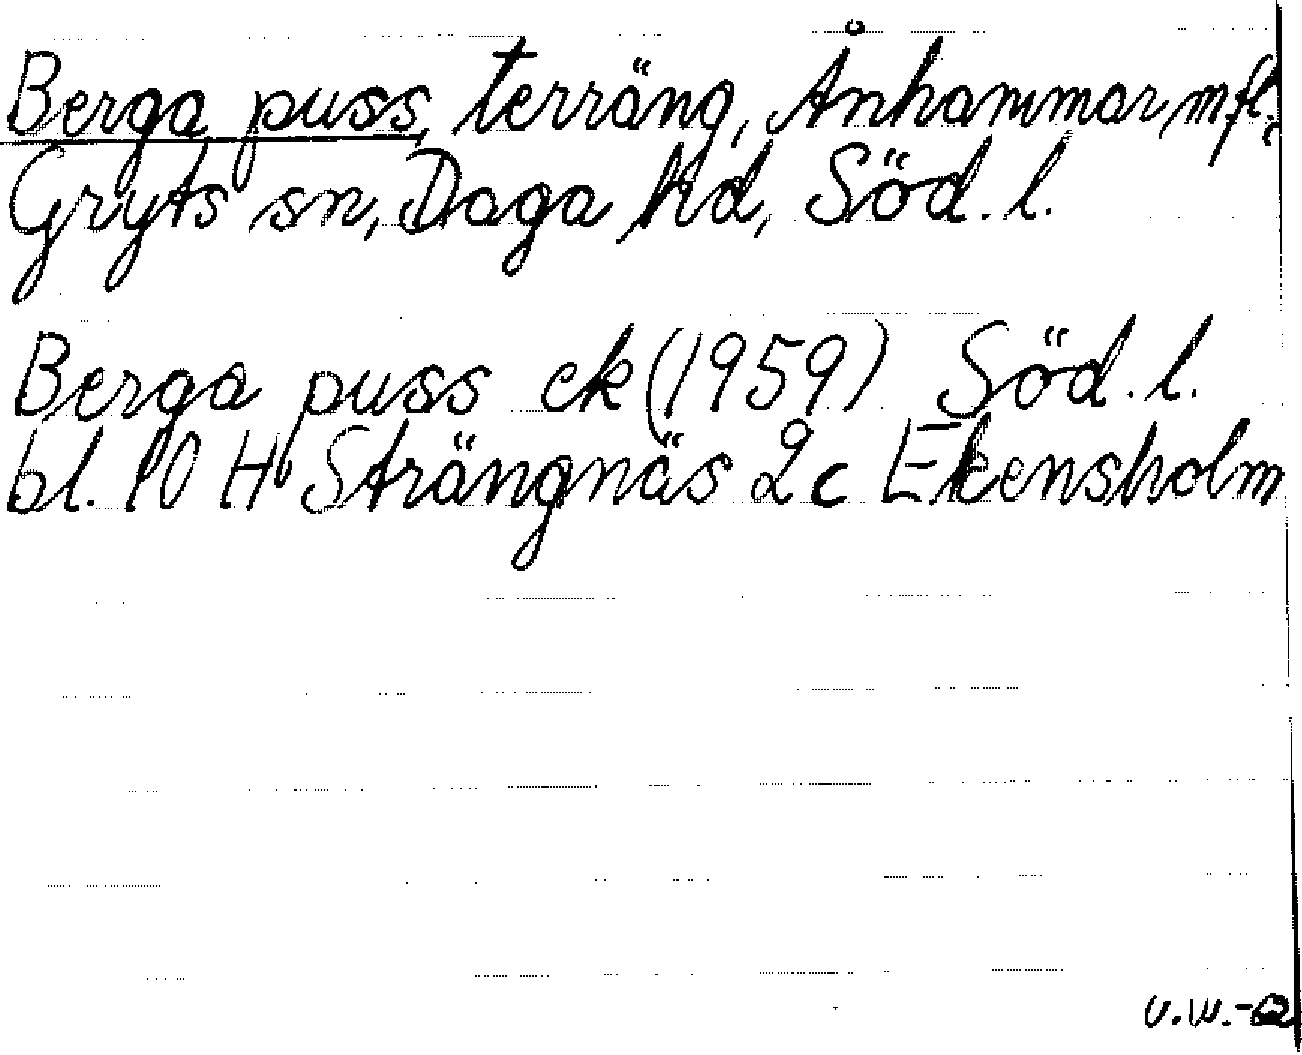 Berga puss, terräng, Ånhammar, mfl.,
Gryts sn, Daga hd, Söd. l.
Berga puss ek (1959) Söd. l.
bl. 10 H Strängnäs 2c Ekensholm